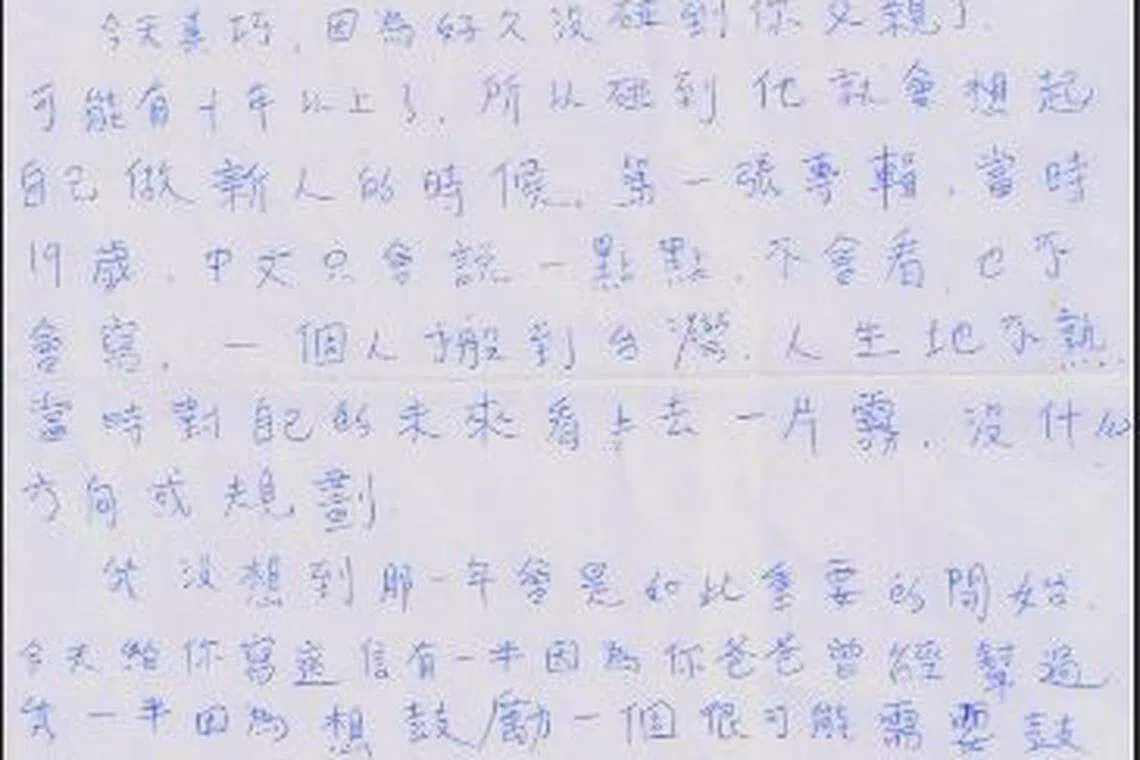 今天真巧，因為好久沒碰到你父親了.
可能有十年以上了. 所以碰到他就會想起
自己做新人的時候. 第一張專輯. 當時
19歲. 中文只會說一點點. 不會看 也不
會寫. 一個人搬到台灣. 人生地不熟.
當時對自己的未來看上去一片霧. 沒什么
方向或規劃.
我沒想到那一年會是如此重要的開始.
今天給你寫這信有一半因為你爸爸曾經幫過
我一半因為想鼓勵一個很可能需要鼓